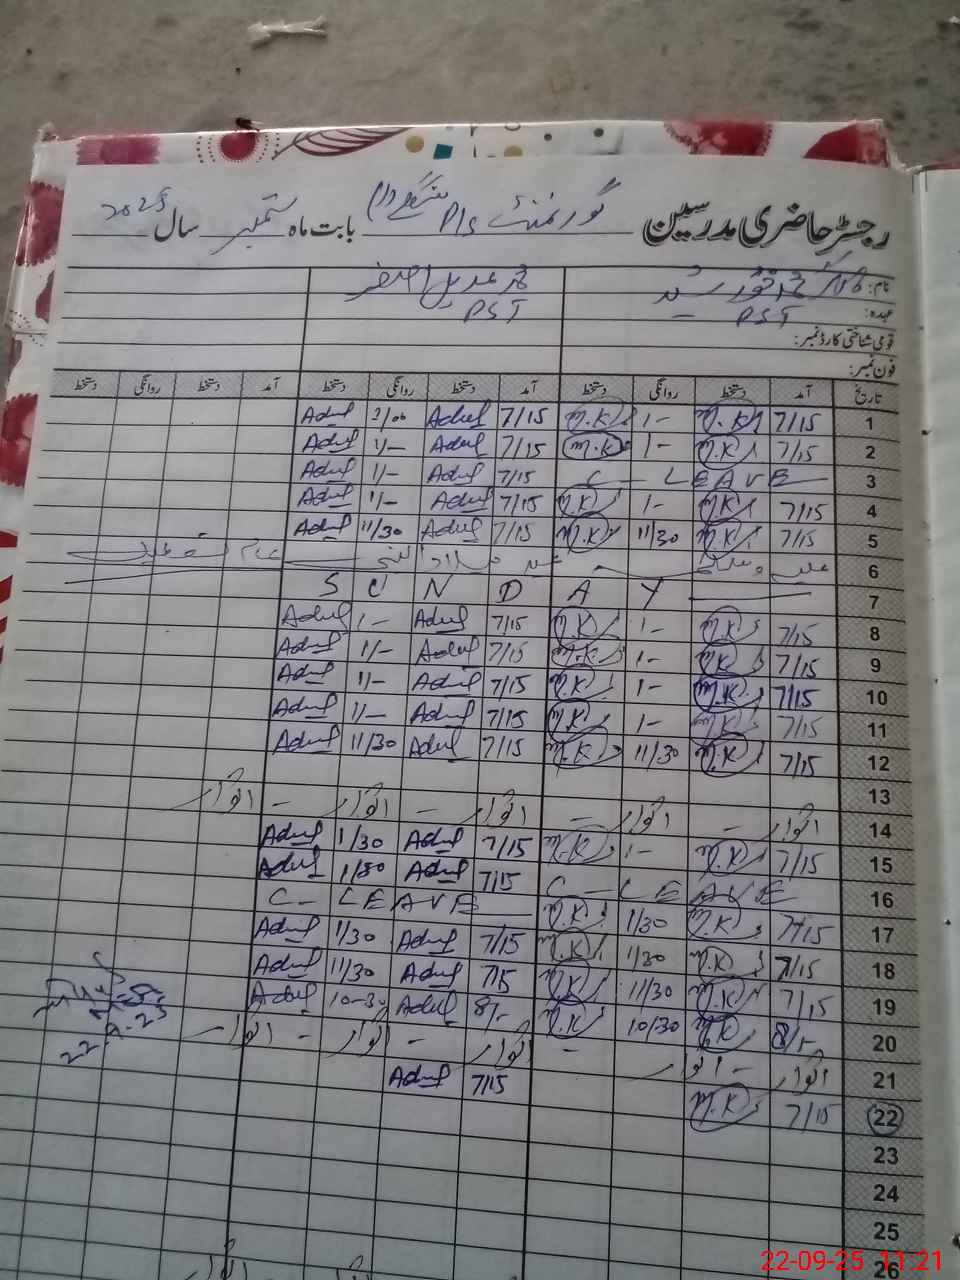 رجسٹر حاضری مدرسین گورنمنٹ P/s بابت ماہ ستمبر سال 2025
نام:
عہدہ: PST PST
قومی شناختی کارڈ نمبر:
فون نمبر:
تاریخ آمد دستخط روانگی دستخط آمد دستخط روانگی دستخط آمد دستخط روانگی دستخط
1 7/15 M.K 1- M.K 7/15 Aduf Aduf
2 7/15 M.K 1- M.K 7/15 Aduf 1/- Aduf
3 C - LEAVE 7/15 Aduf 1/- Aduf
4 7/15 M.K 1- M.K 7/15 Aduf 1/- Aduf
5 7/15 M.K 11/30 M.K 7/15 Aduf 11/30 Aduf
6 عید میلاد النبی عام تعطیل
7 S U N D A Y
8 7/15 M.K 1- M.K 7/15 Aduf 1- Aduf
9 7/15 M.K 1- M.K 7/15 Aduf 1/- Aduf
10 7/15 M.K 1- M.K 7/15 Aduf 1/- Aduf
11 7/15 M.K 1- M.K 7/15 Aduf 1/- Aduf
12 7/15 M.K 11/30 M.K 7/15 Aduf 11/30 Aduf
13
14 اتوار - اتوار - اتوار - اتوار - اتوار
15 7/15 M.K 1- M.K 7/15 Aduf 1/30 Aduf
16 C - LEAVE 7/15 Aduf 1/30 Aduf
17 7/15 M.K 1/30 M.K C - LEAVE
18 7/15 M.K 1/30 M.K 7/15 Aduf 1/30 Aduf
19 7/15 M.K 11/30 M.K 7/15 Aduf 11/30 Aduf
20 8/- M.K 10/30 M.K 8/- Aduf 10-30 Aduf
21 اتوار - اتوار - اتوار - اتوار - اتوار
22 7/15 M.K 7/15 Aduf
23
24
25
26
22-09-25 11:21